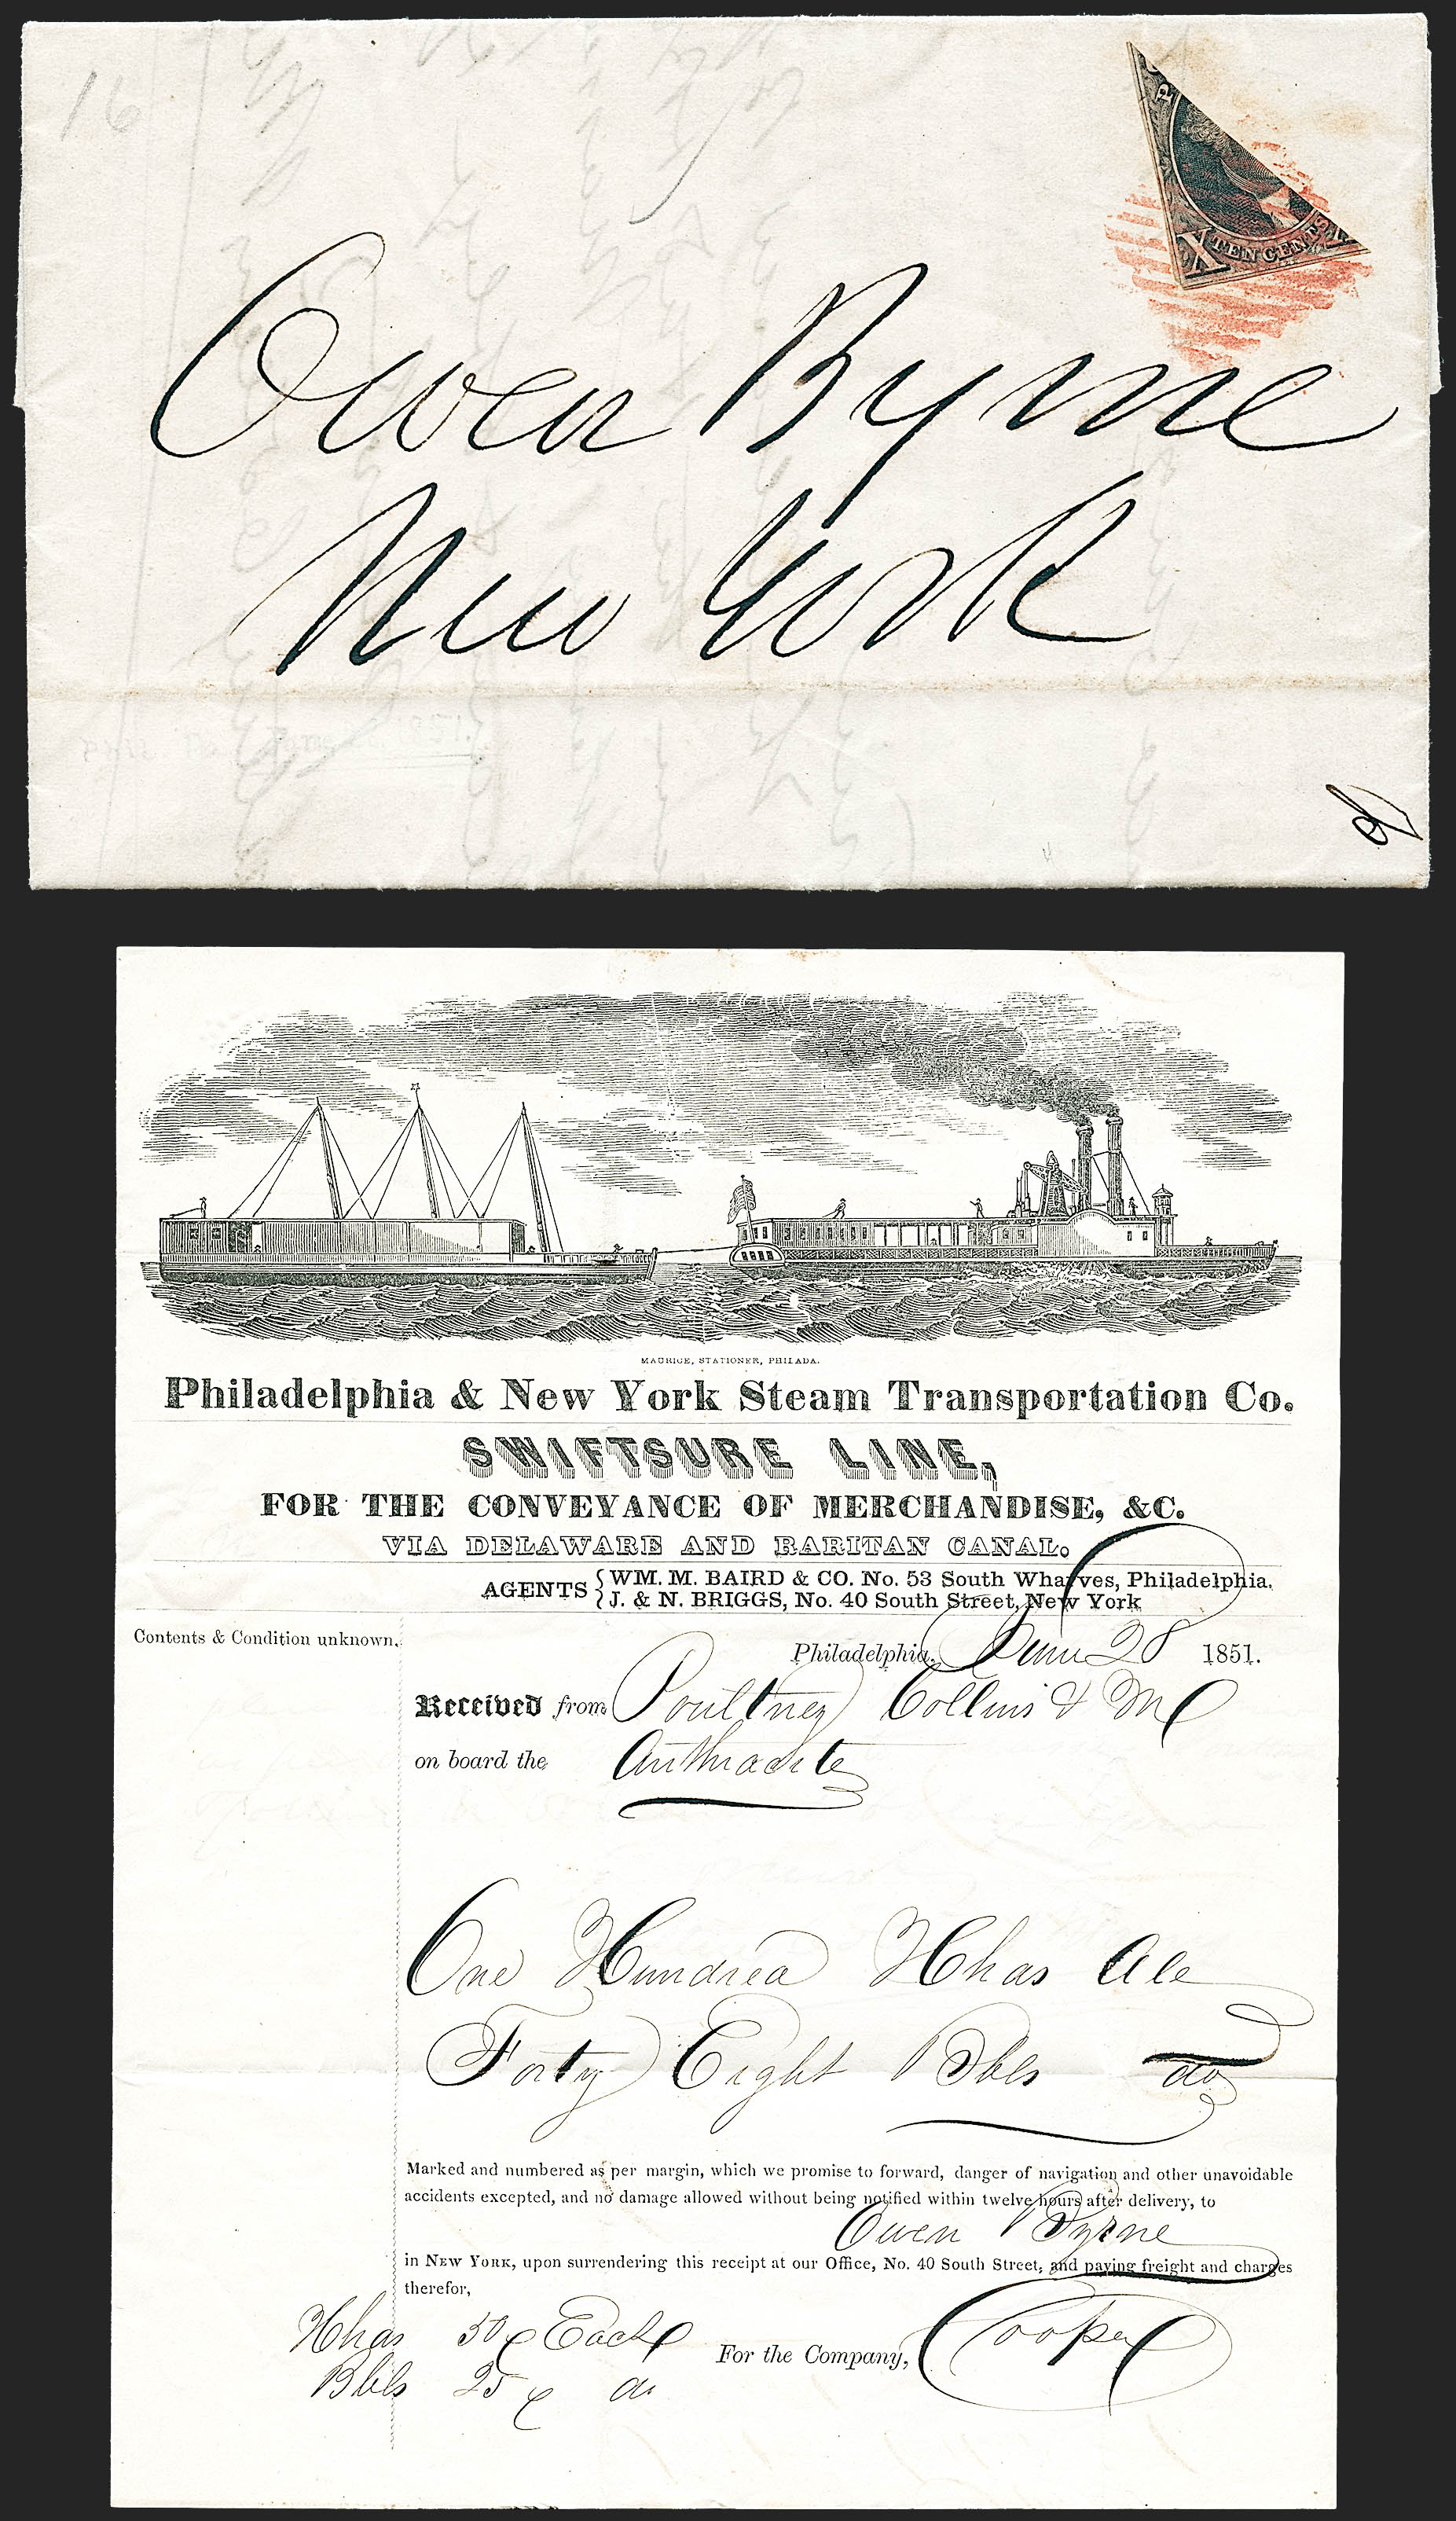 16
X TEN CENTS X
Owen Byrne
New York
MAURICE, STATIONER, PHILADA.
Philadelphia & New York Steam Transportation Co.
SWIFTSURE LINE,
FOR THE CONVEYANCE OF MERCHANDISE, &C.
VIA DELAWARE AND RARITAN CANAL.
AGENTS { WM. M. BAIRD & CO. No. 53 South Wharves, Philadelphia.
J. & N. BRIGGS, No. 40 South Street, New York
Contents & Condition unknown.
Philadelphia, June 28 1851.
Received from Poultney Collins &
on board the Anthracite
One Hundred Hhds Ale
Forty Eight Bbls do
Marked and numbered as per margin, which we promise to forward, danger of navigation and other unavoidable
accidents excepted, and no damage allowed without being notified within twelve hours after delivery, to
Owen Byrne
in NEW YORK, upon surrendering this receipt at our Office, No. 40 South Street, and paying freight and charges
therefor,
Hhds 50 c Each
For the Company, Cooper
Bbls 25 c do